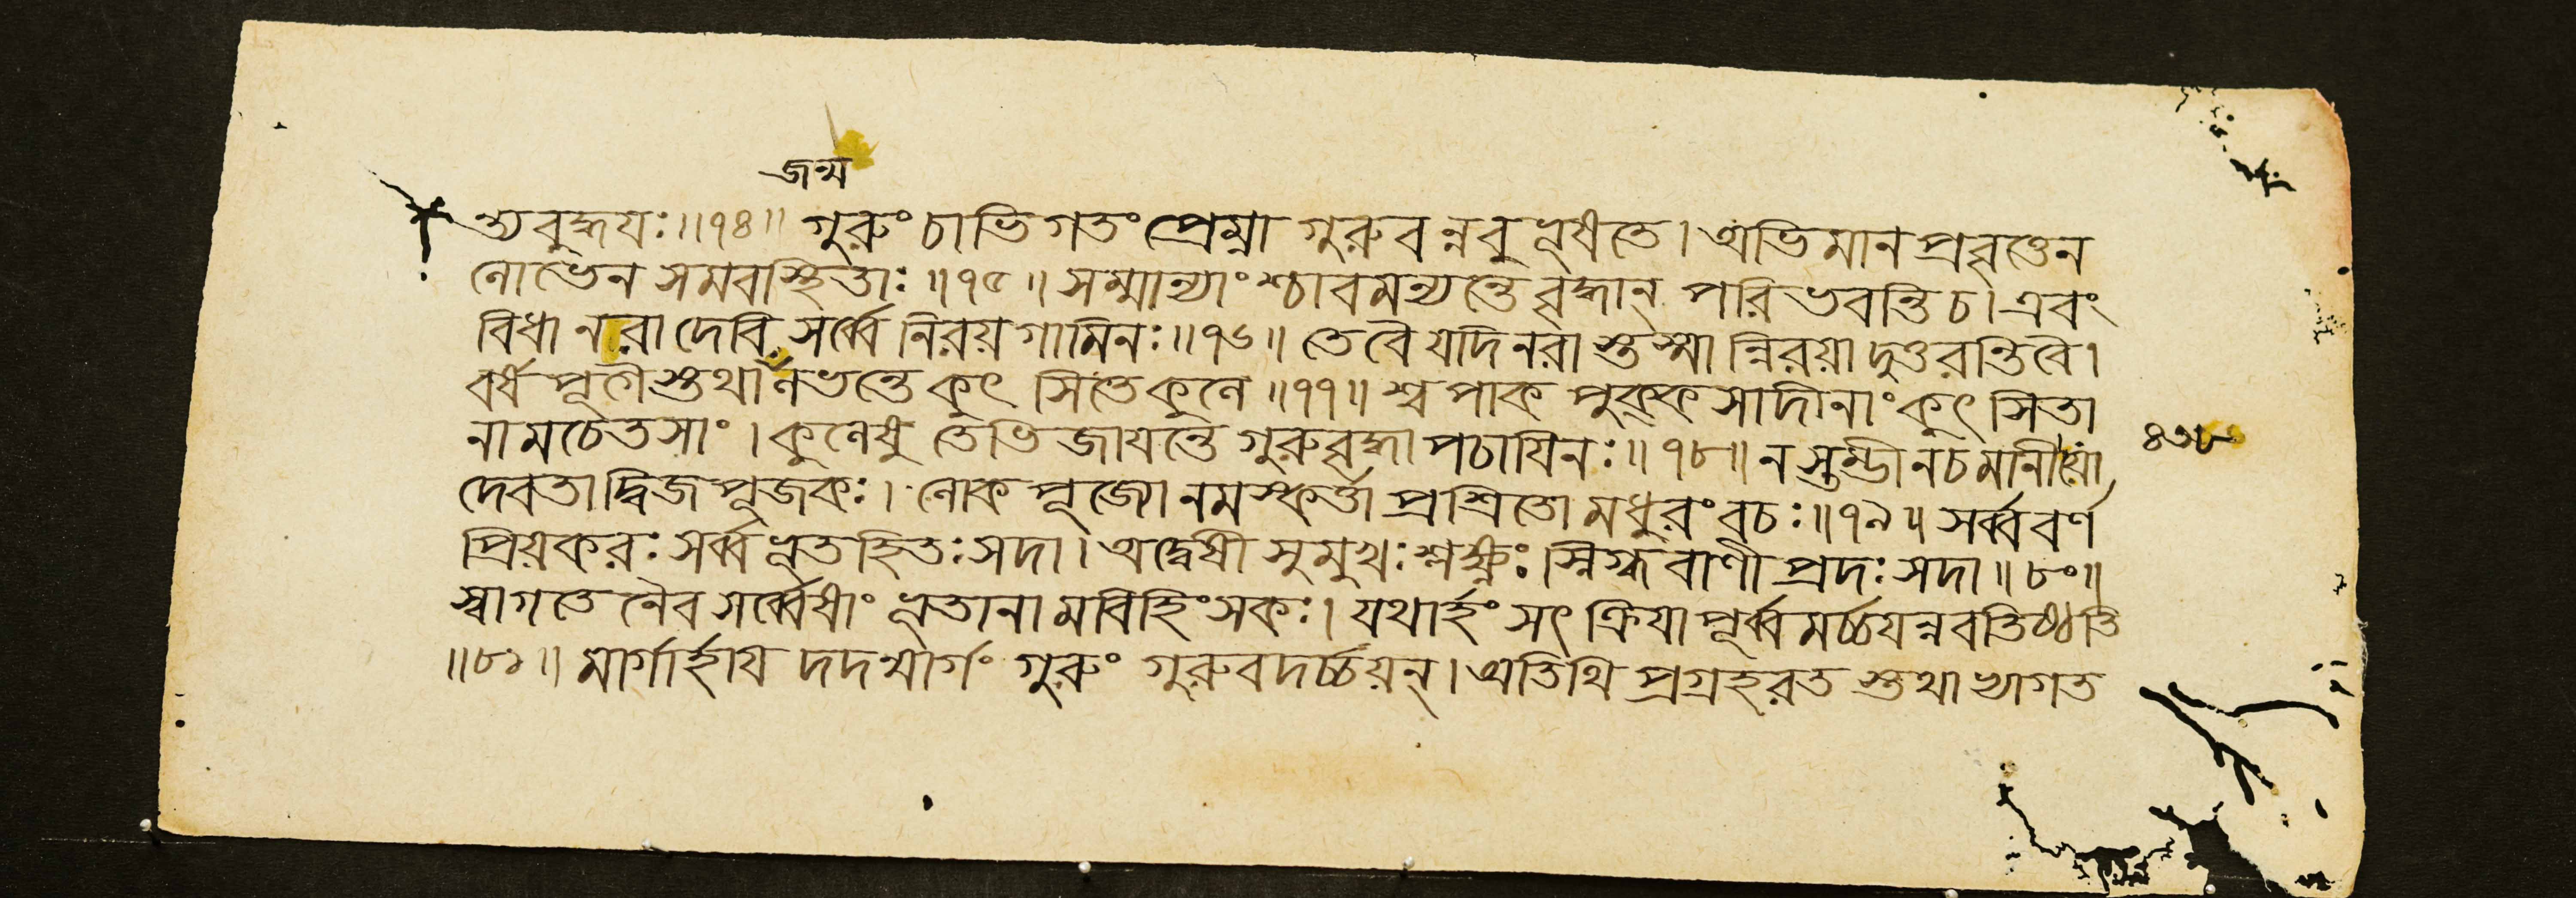 জন্ম
ত্যবুদ্ধয়ঃ॥৭৪॥ গুরুং চাভিগতং প্রেম্না গুরুবন্নবুভূষতে। অভিমানপ্রবৃত্তেন
লোভেন সমবস্থিতাঃ॥৭৫॥ সম্মান্যাংশ্চাবমন্যন্তে বৃদ্ধান্ পরিভবন্তি চ। এবং
বিধা নরা দেবি সর্ব্বে নিরয়গামিনঃ॥৭৬॥ তে বৈ যদি নরাস্তস্মান্নিরয়াদুত্তরন্তি বৈ।
বর্ষপূগৈস্তথা লভন্তে কুৎসিতে কুলে॥৭৭॥ শ্বপাকপুক্কসাদীনাং কুৎসিতা
নামচেতসাং। কুলেষু তেভিজায়ন্তে গুরুবৃদ্ধাপচায়িনঃ॥৭৮॥ ন স্তম্ভী ন চ মানী যো
দেবতাদ্বিজপূজকঃ। লোকপূজ্যো নমস্কর্ত্তা প্রশ্রিতো মধুরং বচঃ॥৭৯॥ সর্ব্ববর্ণ
প্রিয়করঃ সর্ব্বভূতহিতঃ সদা। অদ্বেষী সুমুখঃ শ্লক্ষ্ণঃ স্নিগ্ধবাণীপ্রদঃ সদা॥৮০॥
স্বাগতেনৈব সর্ব্বেষাং ভূতানামবিহিংসকঃ। যথার্হং সৎক্রিয়াপূর্ব্বমর্চ্চয়ন্নবতিষ্ঠতি
॥৮১॥ মার্গার্হায় দদন্মার্গং গুরুং গুরুবদর্চ্চয়ন্। অতিথিপ্রগ্রহরতস্তথাভ্যাগত
৪৩৮